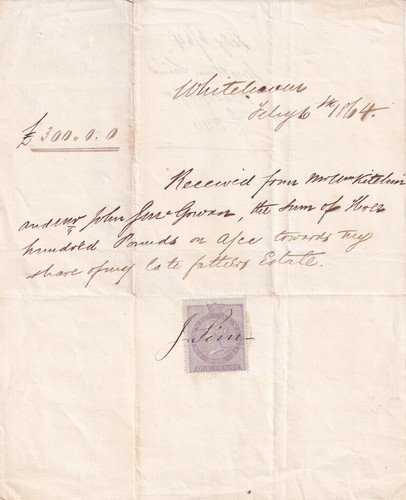 Whitehaven
Feby 6th 1864.
£300..0.0
Received from Mr Wm Kitchin
and Mr John Jno McGowan, the Sum of Three
hundred Pounds on a/cc towards my
share of my late fathers Estate.
J. Sim